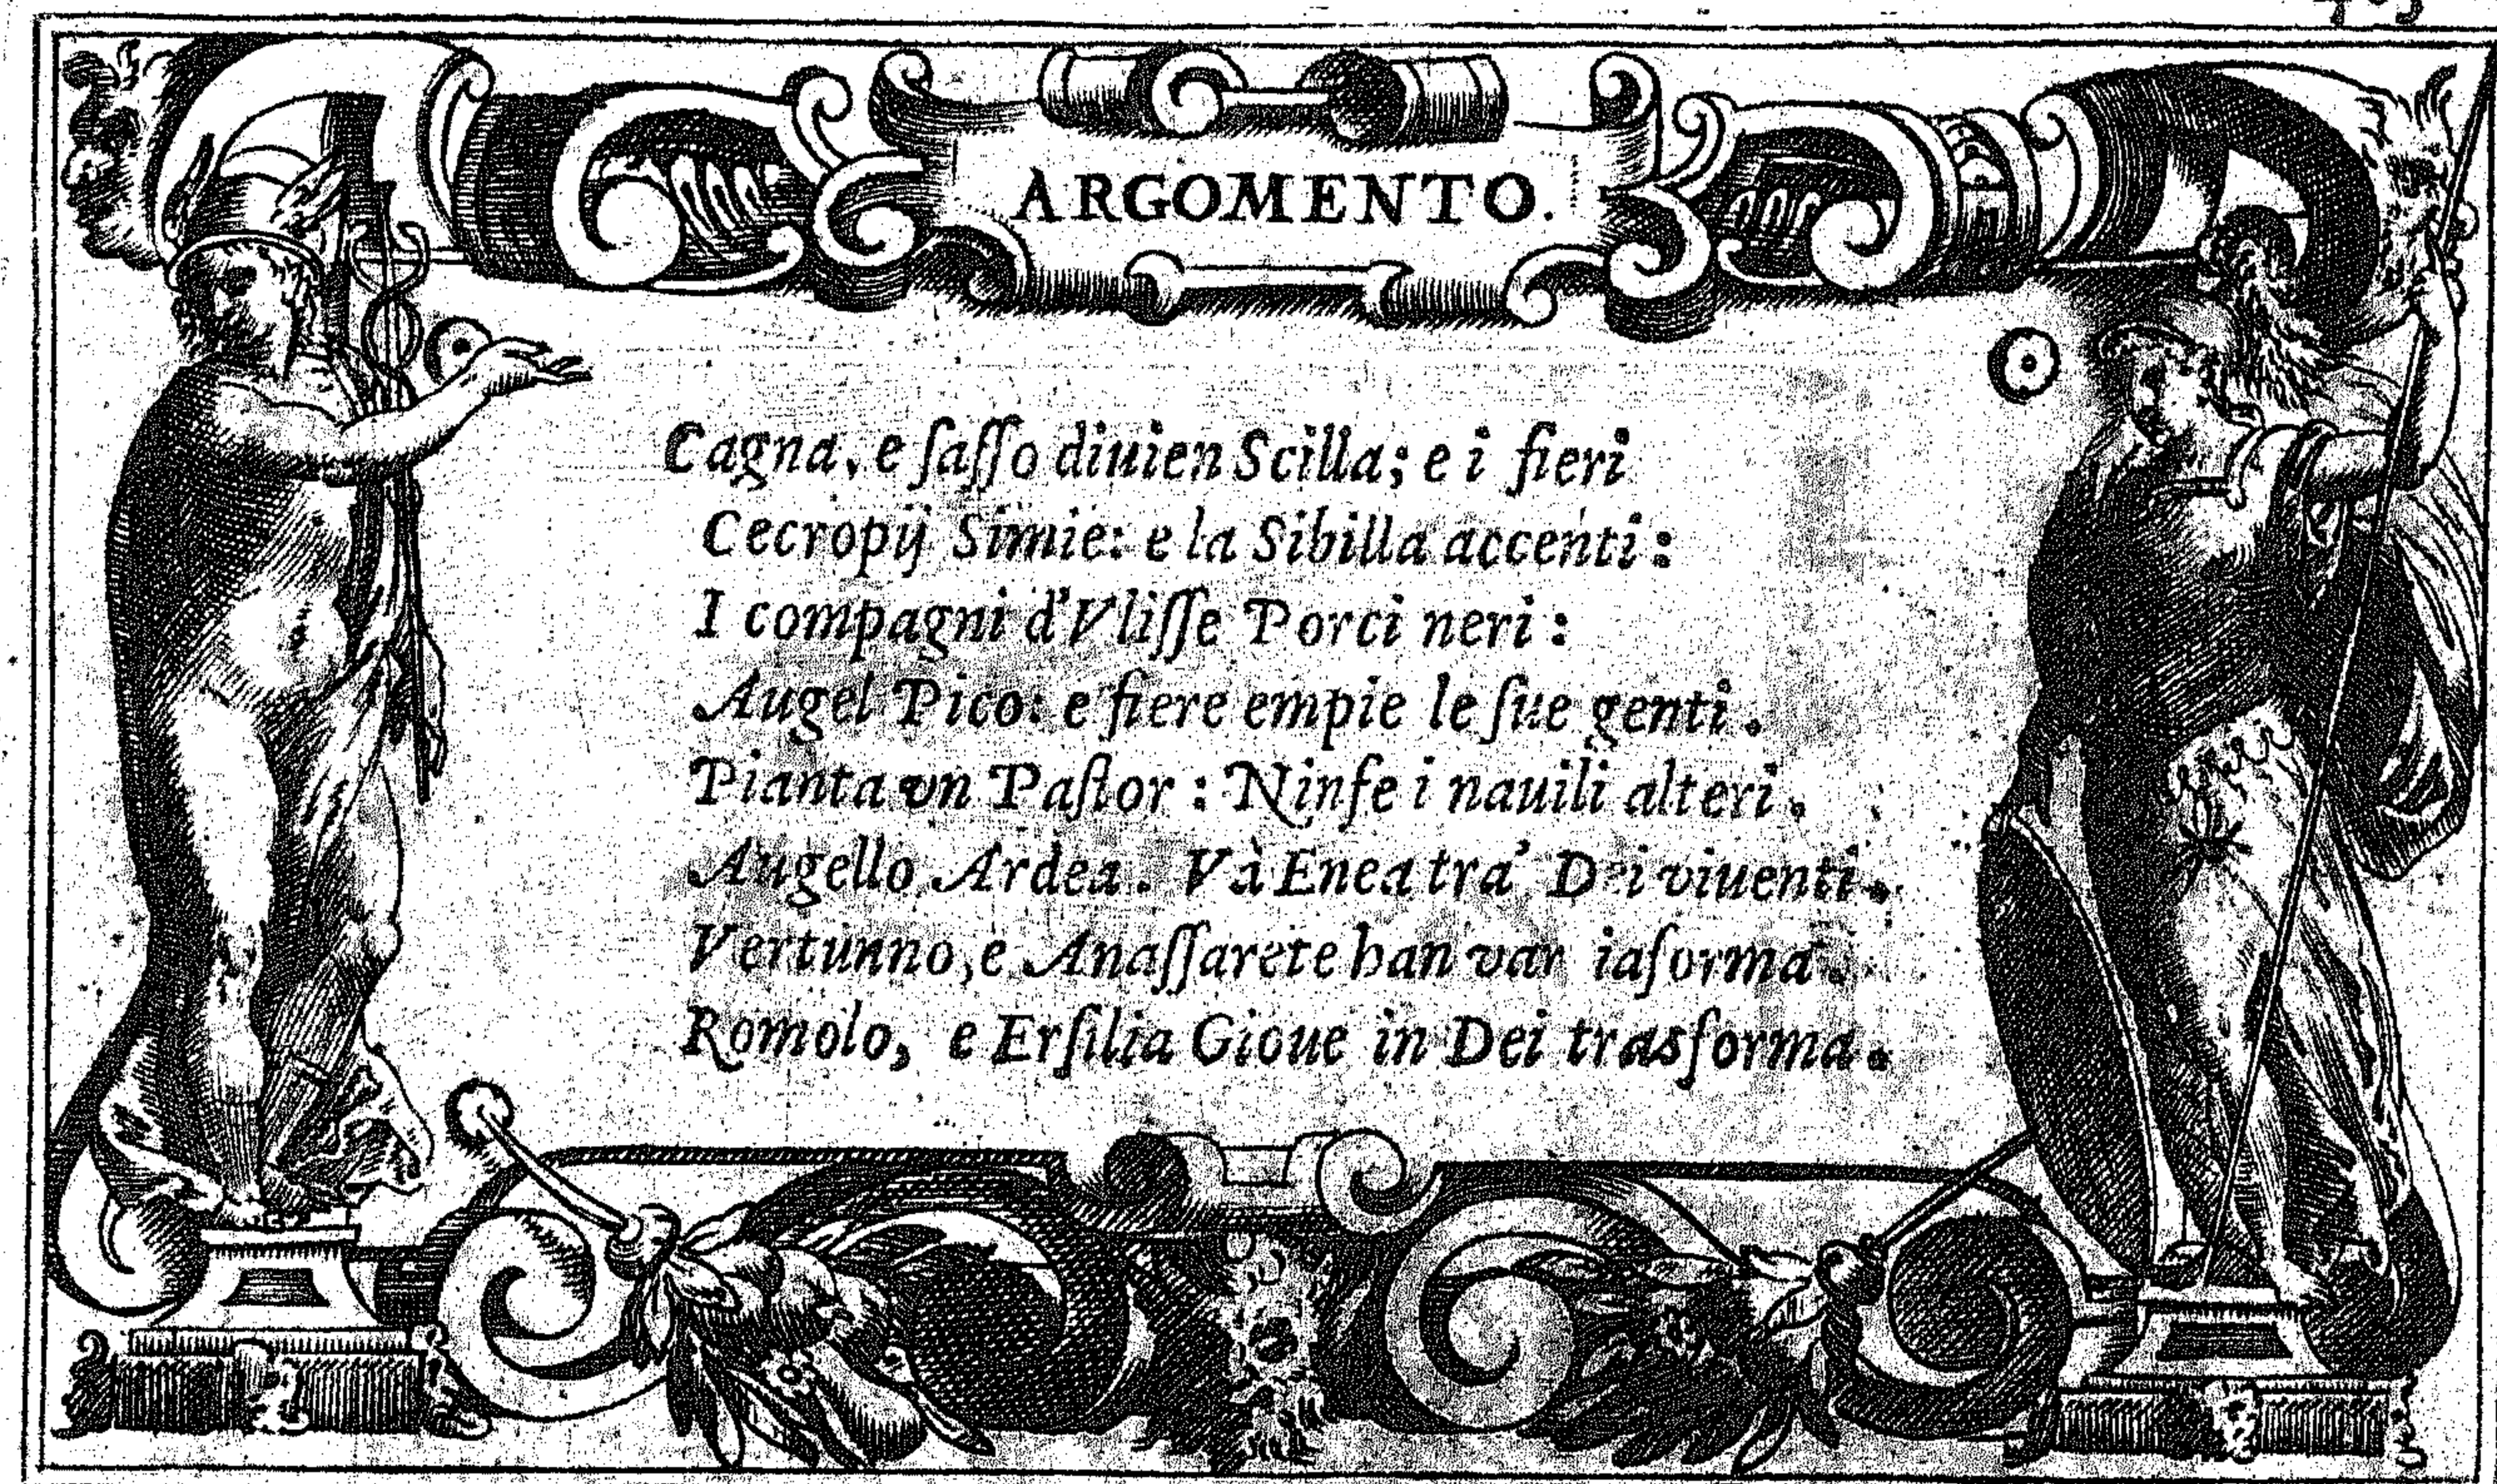 ARGOMENTO.
Cagna, e ſaſſo diuien Scilla; e i fieri
Cecropij Simie: e la Sibilla accenti:
I compagni d'Vliſſe Porci neri:
Augel Pico: e fiere empie le ſue genti.
Pianta vn Paſtor: Ninfe i nauili alteri.
Augello Ardea. Và Enea tra' Dei viuenti.
Vertunno, e Anaſſarete han var iaforma.
Romolo, e Erſilia Gioue in Dei trasforma.